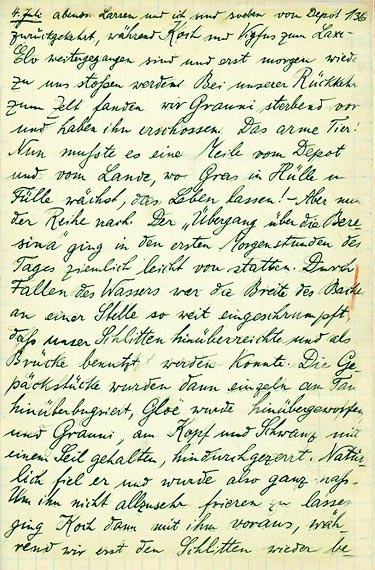 4. Juli abends. Larsen und ich sind soeben vom Depot 136
zurückgekehrt, während Koch und Vigfus zum Laxe-
Elv weitergegangen sind und erst morgen wieder
zu uns stoßen werden. Bei unserer Rückkehr
zum Zelt fanden wir Grauni sterbend vor
und haben ihn erschossen. Das arme Tier!
Nun mußte es eine Meile vom Depot
und vom Lande, wo Gras in Hülle u
Fülle wächst, das Leben lassen! – Aber nun
der Reihe nach. Der „Übergang über die Bere-
sina“ ging in den ersten Morgenstunden des
Tages ziemlich leicht von statten. Durch
Fallen des Wassers war die Breite des Bachs
an einer Stelle so weit eingeschrumpft,
daß unser Schlitten hinüberreichte und als
Brücke benutzt werden konnte. Die Ge-
päckstücke wurden dann einzeln am Tau
hinüberbugsiert, Gloë wurde hinübergeworfen
und Grauni, am Kopf und Schwanz mit
einem Seil gehalten, hindurchgezerrt. Natür-
lich fiel er und wurde also ganz naß.
Um ihn nicht allzusehr frieren zu lassen
ging Koch dann mit ihm voraus, wäh-
rend wir erst den Schlitten wieder be-